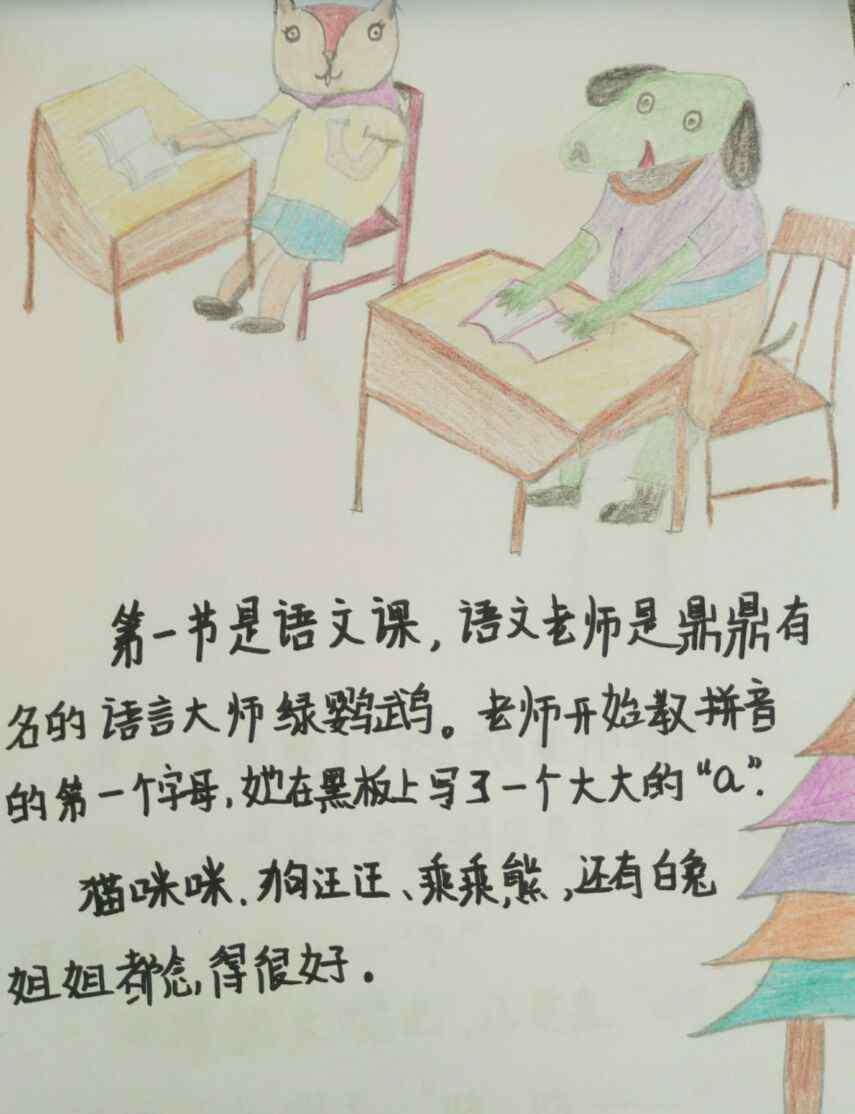 第一节是语文课,语文老师是鼎鼎有
名的语言大师绿鹦鹉。老师开始教拼音
的第一个字母,她在黑板上写了一个大大的“a”.
猫咪咪、狗汪汪、乖乖熊,还有白兔
姐姐都念得很好。